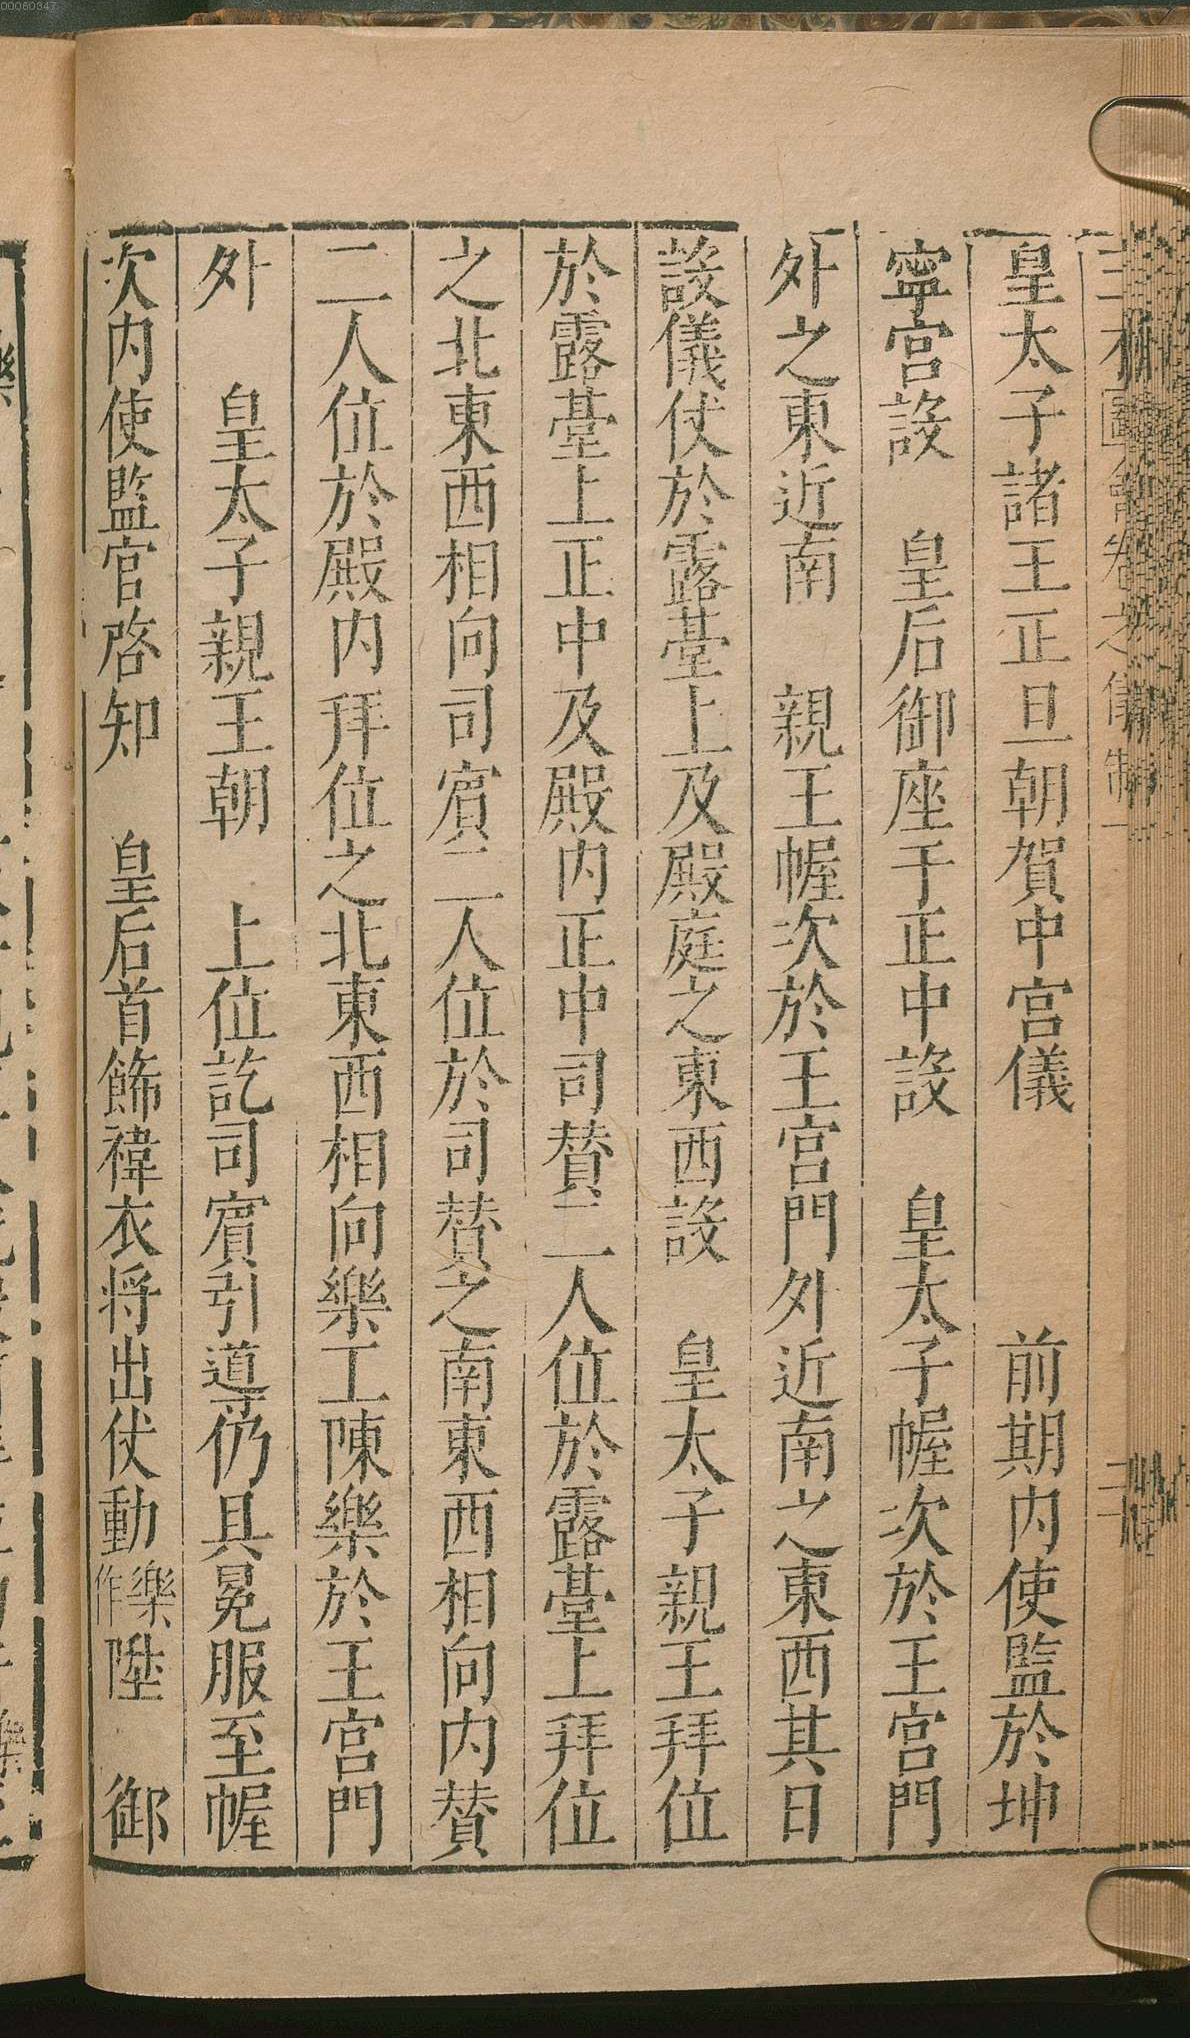 00060347
皇太子諸王正旦朝賀中宮儀　前期内使監於坤
寧宮設　皇后御座于正中設　皇太子幄次於王宮門
外之東近南　親王幄次於王宮門外近南之東西其日
設儀仗於露臺上及殿庭之東西設　皇太子親王拜位
於露臺上正中及殿内正中司賛二人位於露臺上拜位
之北東西相向司賔二人位於司賛之南東西相向内賛
二人位於殿内拜位之北東西相向樂工陳樂於王宮門
外　皇太子親王朝　上位訖司賔引導仍具冕服至幄
次内使監官啓知　皇后首飾褘衣将出仗動樂作陞　御